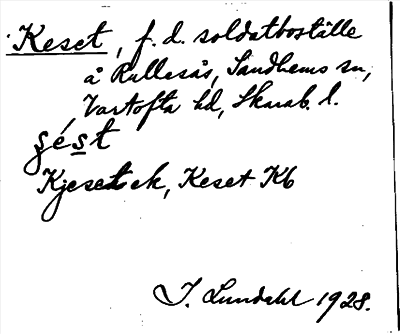 Keset, f. d. soldatboställe
å Rullesås, Sandhems sn,
Vartofta hd, Skarab. l.
şés̲t
Kjesetek, Keset Kb
I. Lundahl 1928.